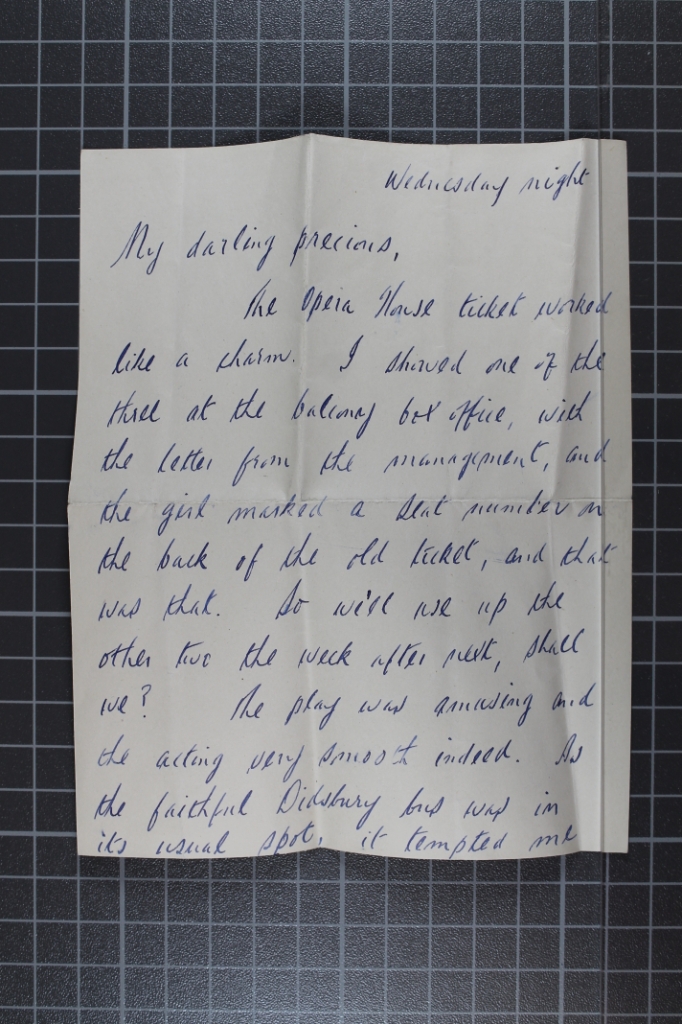 Wednesday night
My darling precious,
The Opera House ticket worked
like a charm. I showed one of the
three at the balcony box office, with
the letter from the management, and
the girl marked a seat number on
the back of the old ticket, and that
was that. So we'll use up the
other two the week after next, shall
we? The play was amusing and
the acting very smooth indeed. As
the faithful Didsbury bus was in
its usual spot, it tempted me